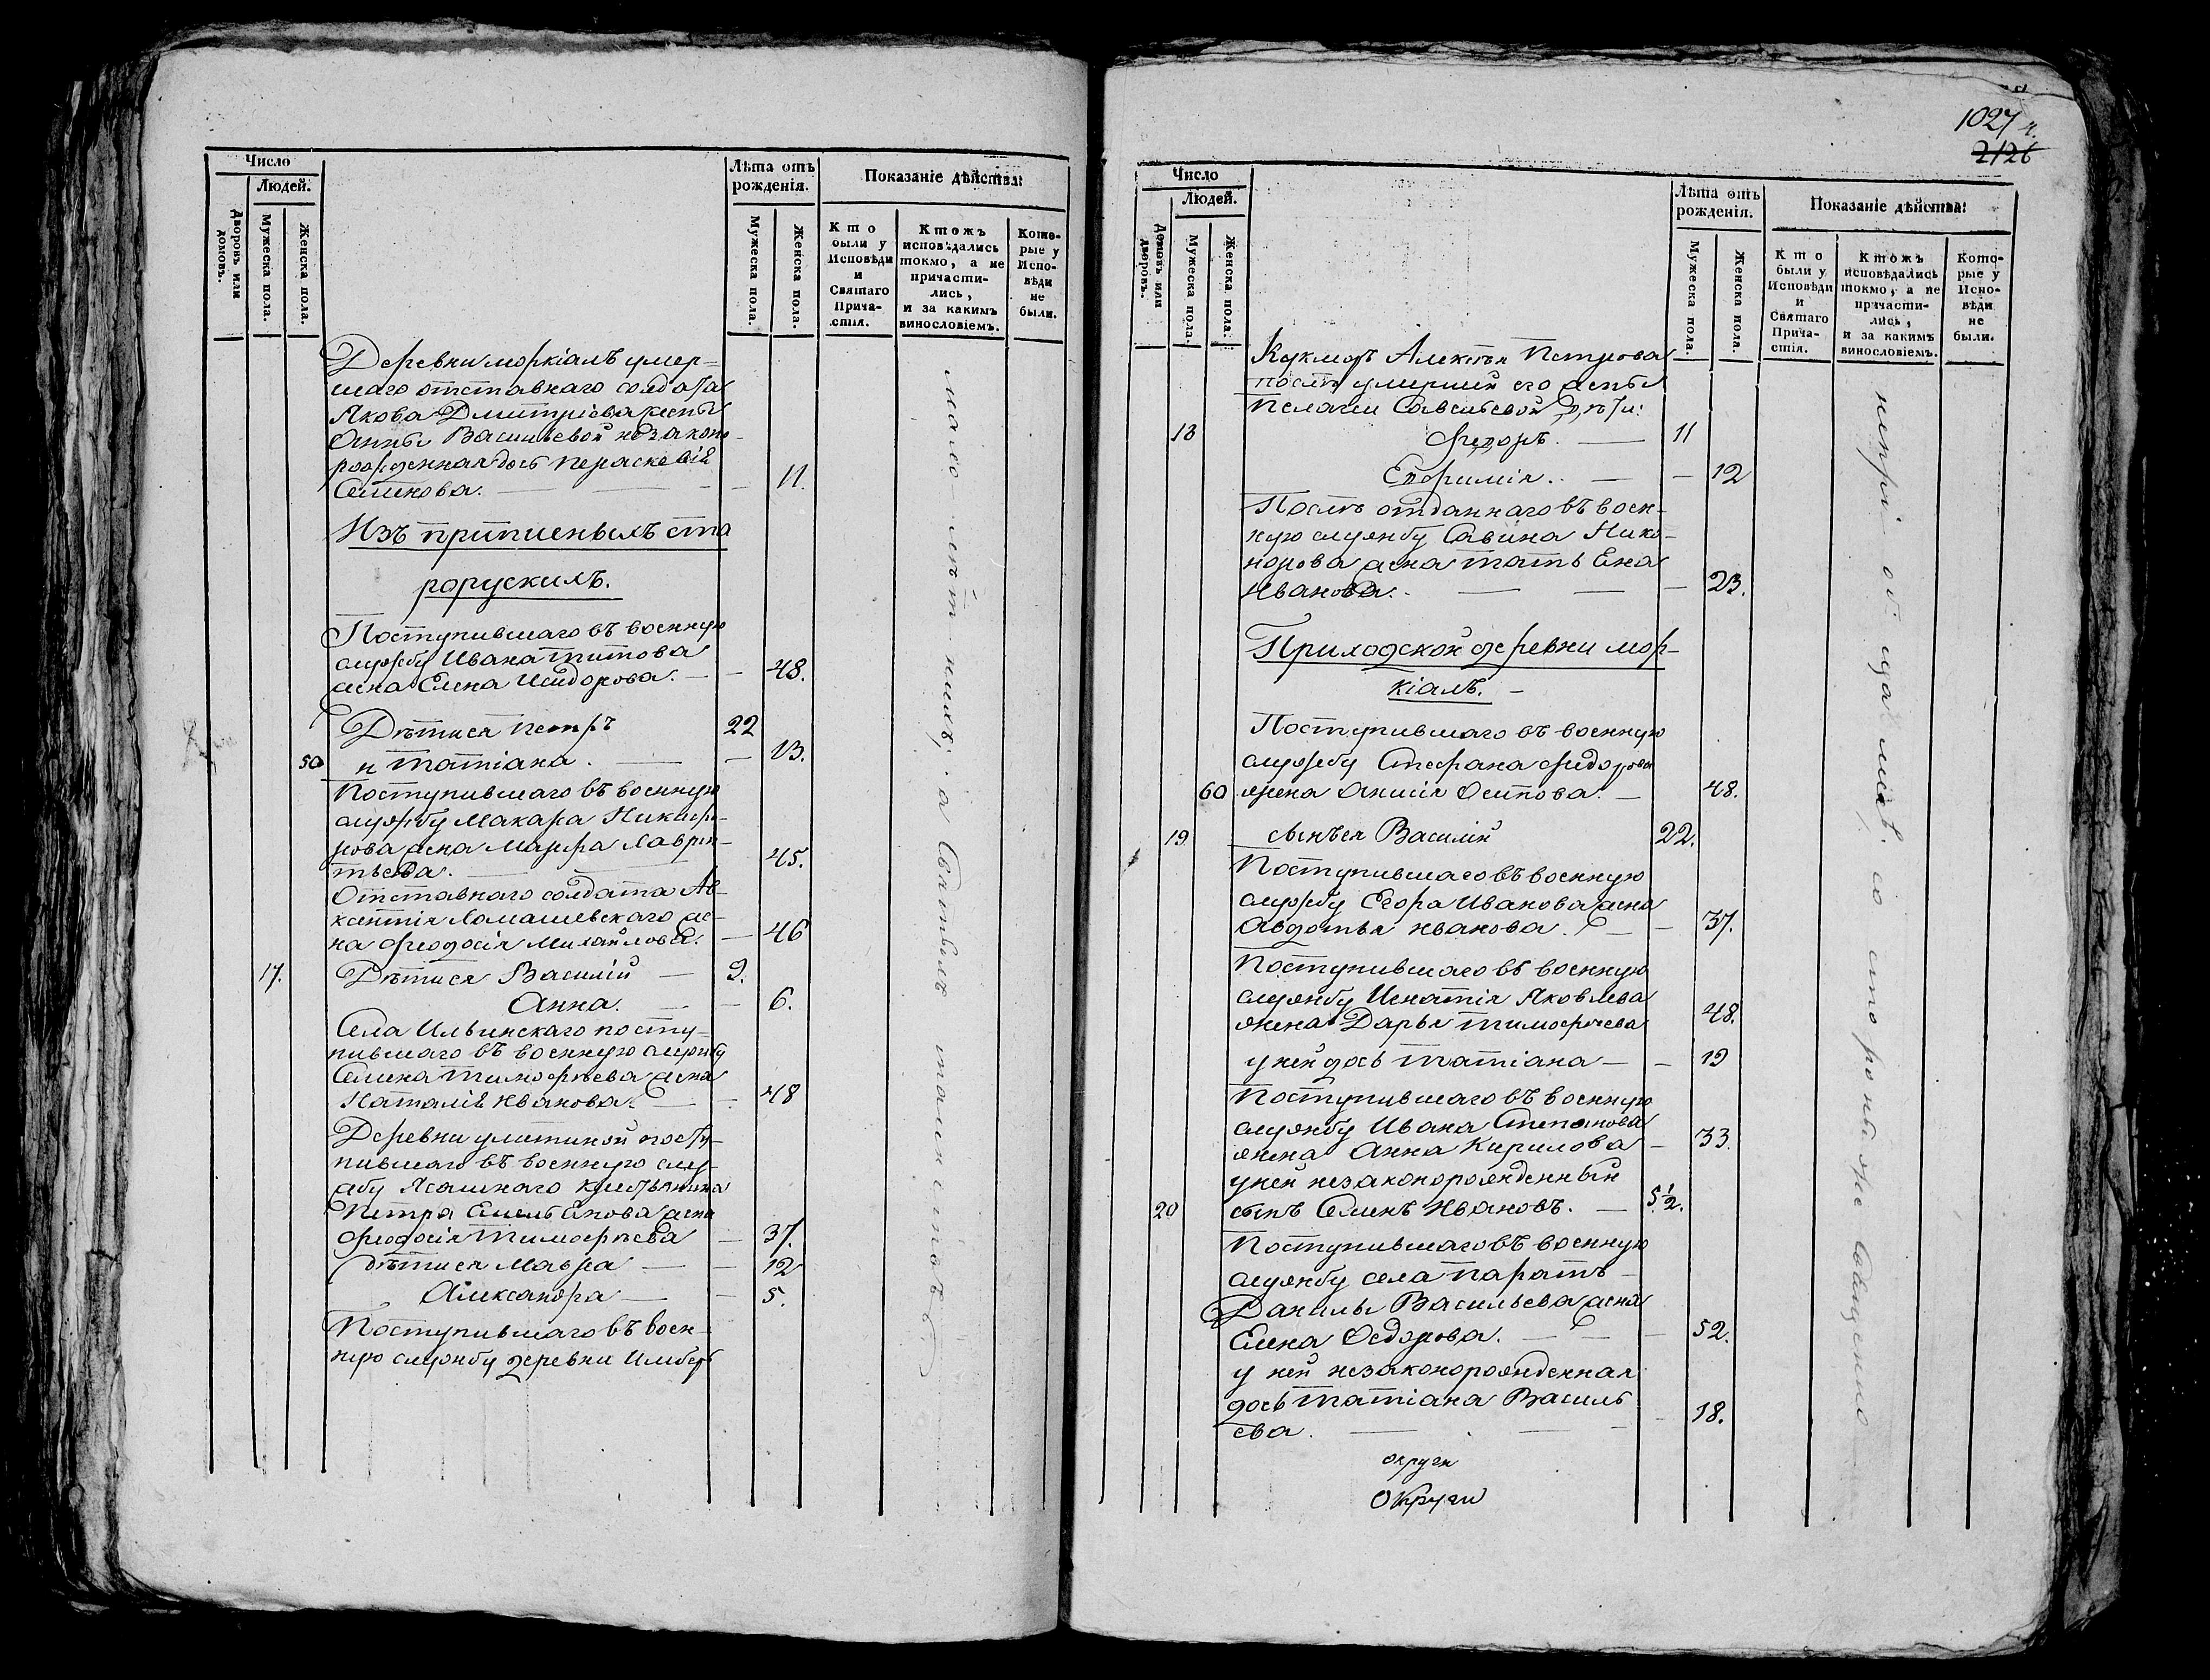 Число
Людей.
Дворовъ или домовъ.
Мужеска пола.
Женска пола.
Лѣта отъ рожденія.
Мужеска пола.
Женска пола.
Показаніе дѣйства:
Кто были у Исповѣди и Святаго Прича-стія.
Ктожъ исповѣдались токмо, а не причасти-лись, и за какимъ винословіемъ.
Кото-рые у Испо-вѣди не были.
Деревни моркіалъ умер=
шаго отставнаго солдата
Якова Дмитріева жены
Анны Васильевой незаконо-
рожденная дочь Параскевія
Семенова. — — 11.
Изъ приписныхъ ста
рорускихъ.
Поступившаго въ военную
службу Ивана Титова
жена Елена Исидорова. — 48.
Дѣти ея Петръ 22
50 и Татіана. — 23.
Поступившаго въ военную
службу Макара Никифо-
рова жена Марфа Лаврен-
тьева. — 45.
Отставнаго солдата Ав-
ксентія Ломашевскаго же-
на Феодосія Михайлова. — 46
17. Дѣти ея Василій — 9.
Анна. — 6.
Села Ильинскаго посту-
пившаго въ военную службу
Семена Тимофѣева жена
Наталія Иванова. — 48
Деревни поступ-
пившаго въ военную слу-
жбу Ясашнаго крестьянина
Петра Емельянова жена
Феодосія Тимофѣева — 37.
дѣти ея Мавра — 12
Александра — 5.
Поступившаго въ воен-
ную службу деревни
мало лѣт ныхъ, а Святыхъ таинствъ
1027
2126
Число
Людей.
Домовъ или дворовъ.
Мужеска пола.
Женска пола.
Лѣта отъ рожденія.
Мужеска пола.
Женска пола.
Показаніе дѣйства:
Кто были у Исповѣди и Святаго Прича-стія.
Ктожъ исповѣдались токмо, а не причасти-лись, и за какимъ винословіемъ.
Кото-рые у Испо-вѣди не были.
Кукморъ Алексѣя Петрова
послѣ умершей его жены
Пелагеи Савельевой дѣти:
18 Феодоръ. — 11
Евфимія. — 12
Послѣ отданнаго въ воен-
ную службу Савина Нико-
норова жена Татьяна
Иванова. — 23.
Приходской деревни мор-
кіалъ.
Поступившаго въ военную
службу Стефана Федорова
60 жена Анисія Осипова. — 48.
19 сынъ ея Василій 22.
Поступившаго въ военную
службу Егора Иванова жена
Авдотья Иванова. — 37.
Поступившаго въ военную
службу Игнатія Яковлева
жена Дарья Тимофѣева 48.
у ней дочь Татіана — 19
Поступившаго въ военную
службу Ивана Степанова
жена Анна Кирилова — 33.
у ней незаконорожденный
20 сынъ Семенъ Ивановъ. — 5 1/2.
Поступившаго въ военную
службу села Паратъ
Данилы Васильева жена
Елена Федорова. — 52.
у ней незаконорожденная
дочь Татіана Василь
ева. — 18.
округи
Округи
непріобщались со стороны же Священно